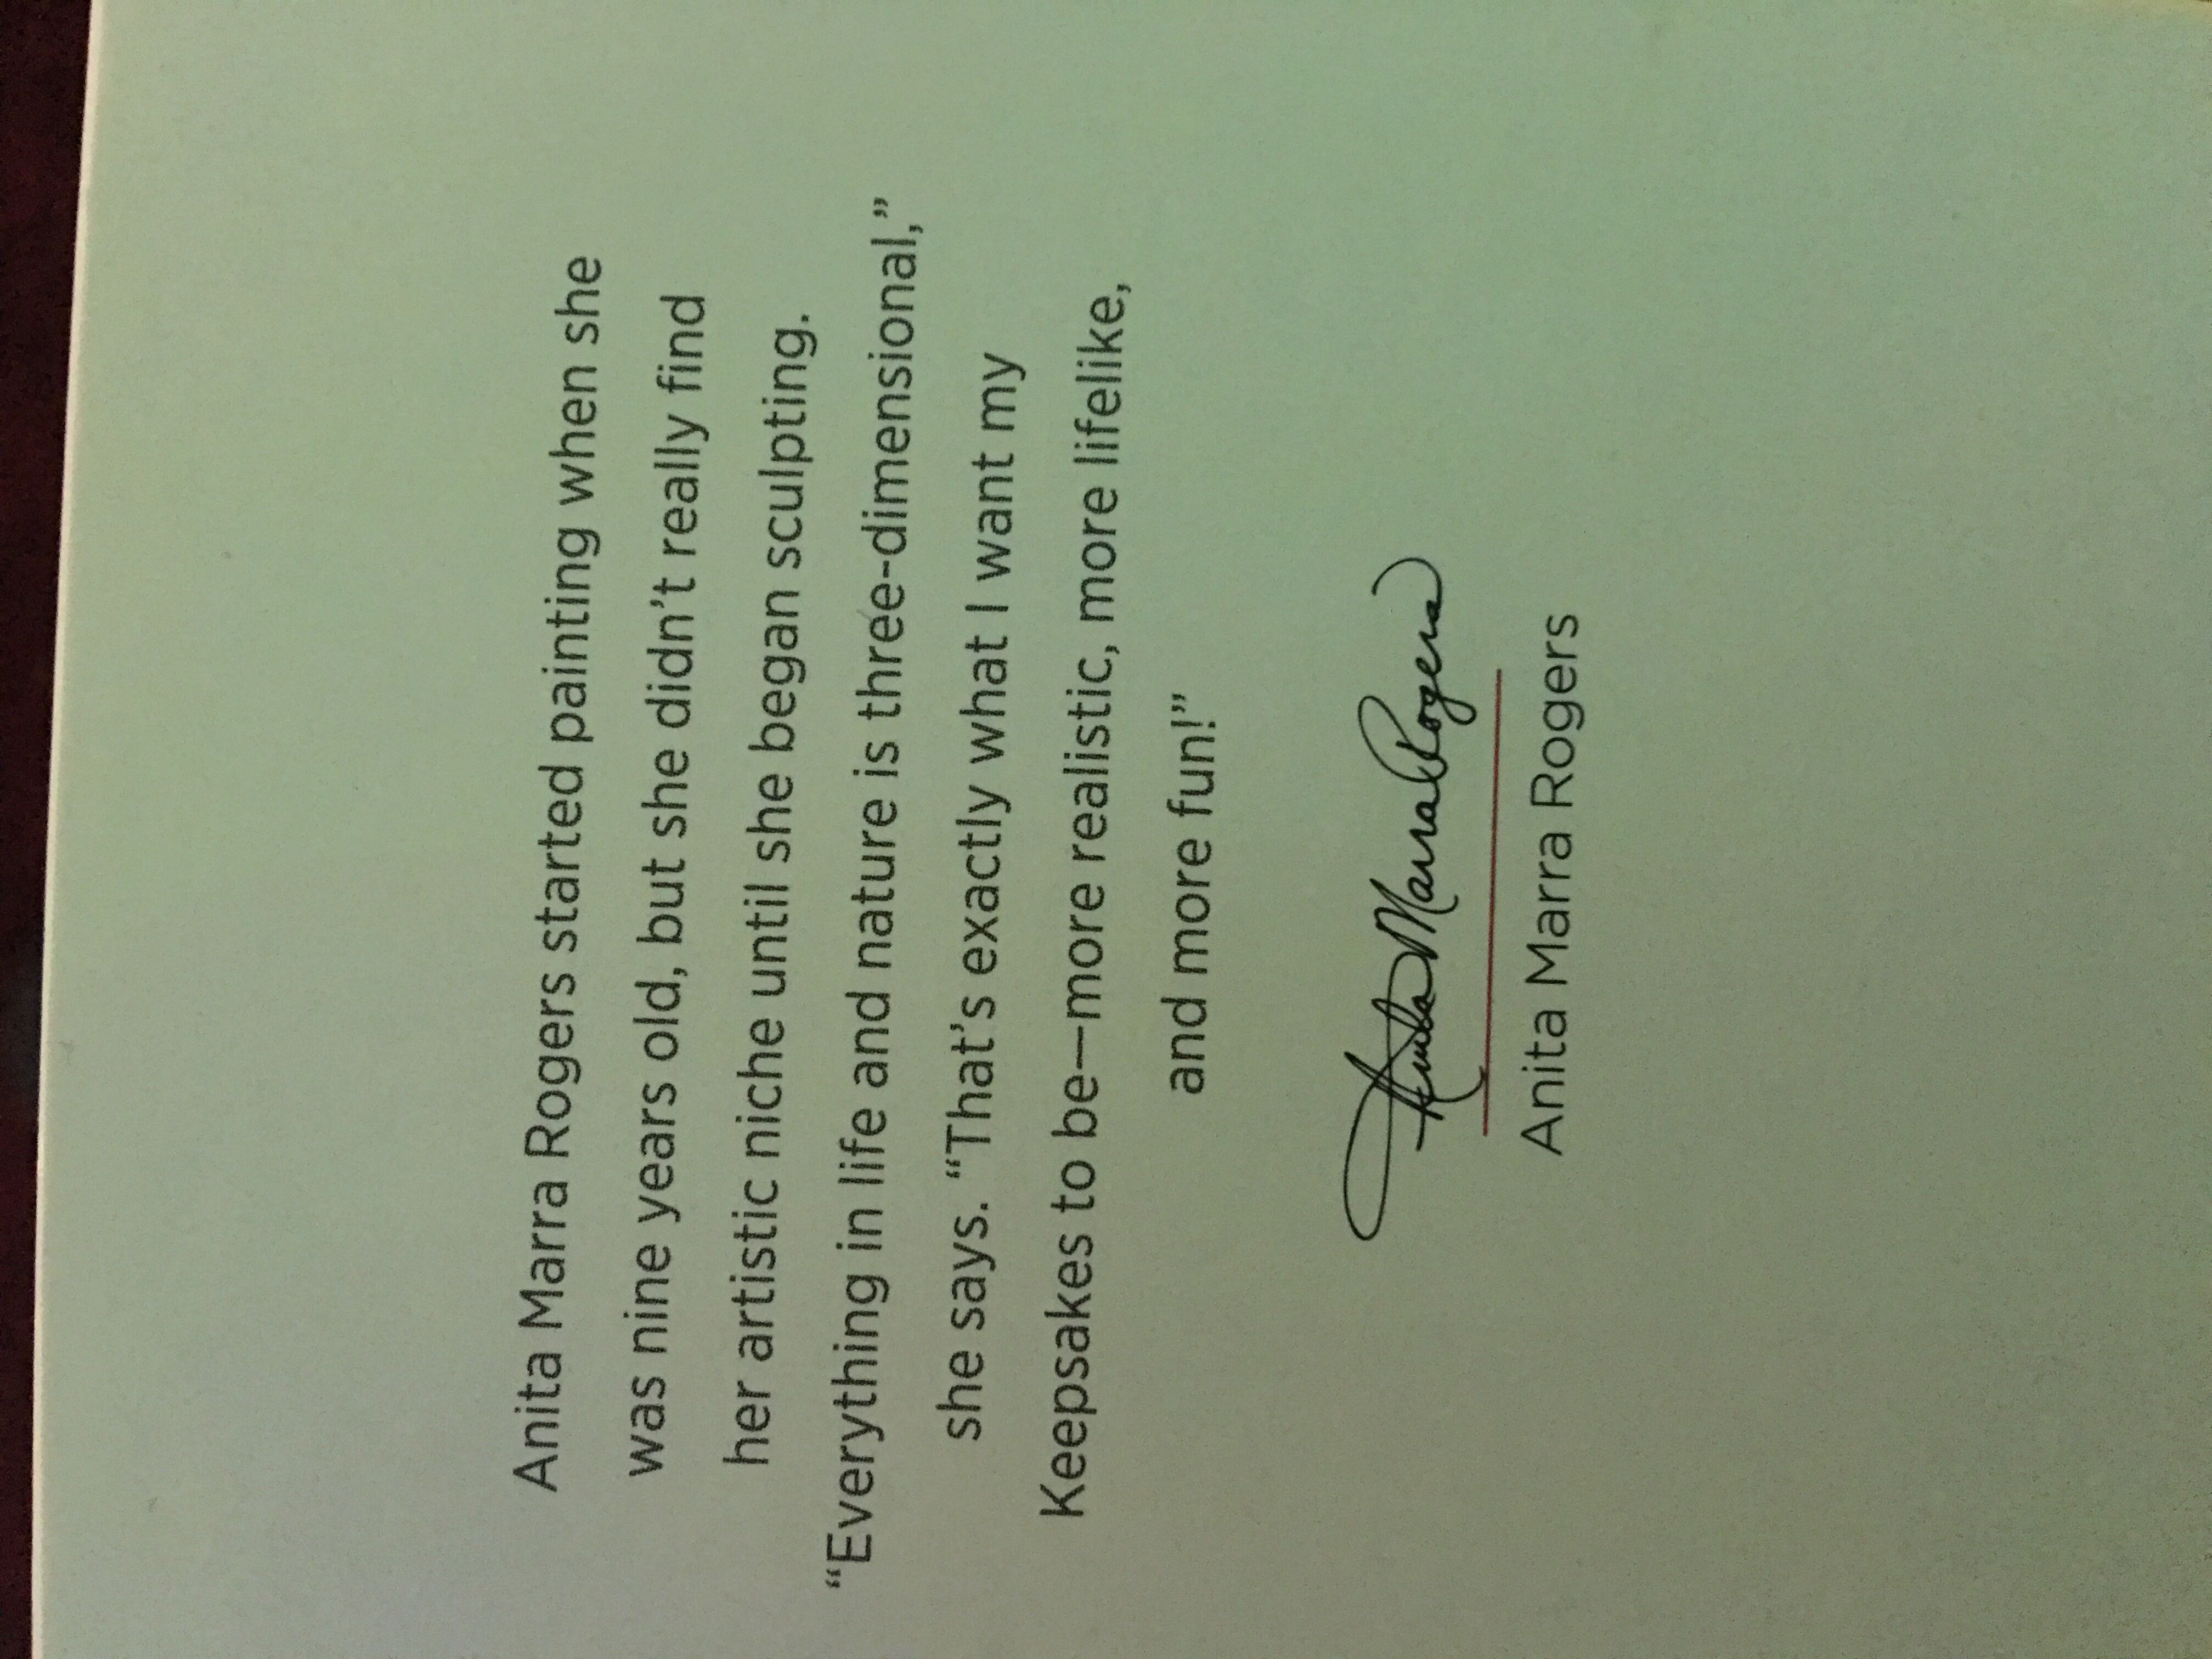 Anita Marra Rogers started painting when she
was nine years old, but she didn't really find
her artistic niche until she began sculpting.
“Everything in life and nature is three-dimensional,”
she says. “That's exactly what I want my
Keepsakes to be—more realistic, more lifelike,
and more fun!”
Anita Marra Rogers
Anita Marra Rogers